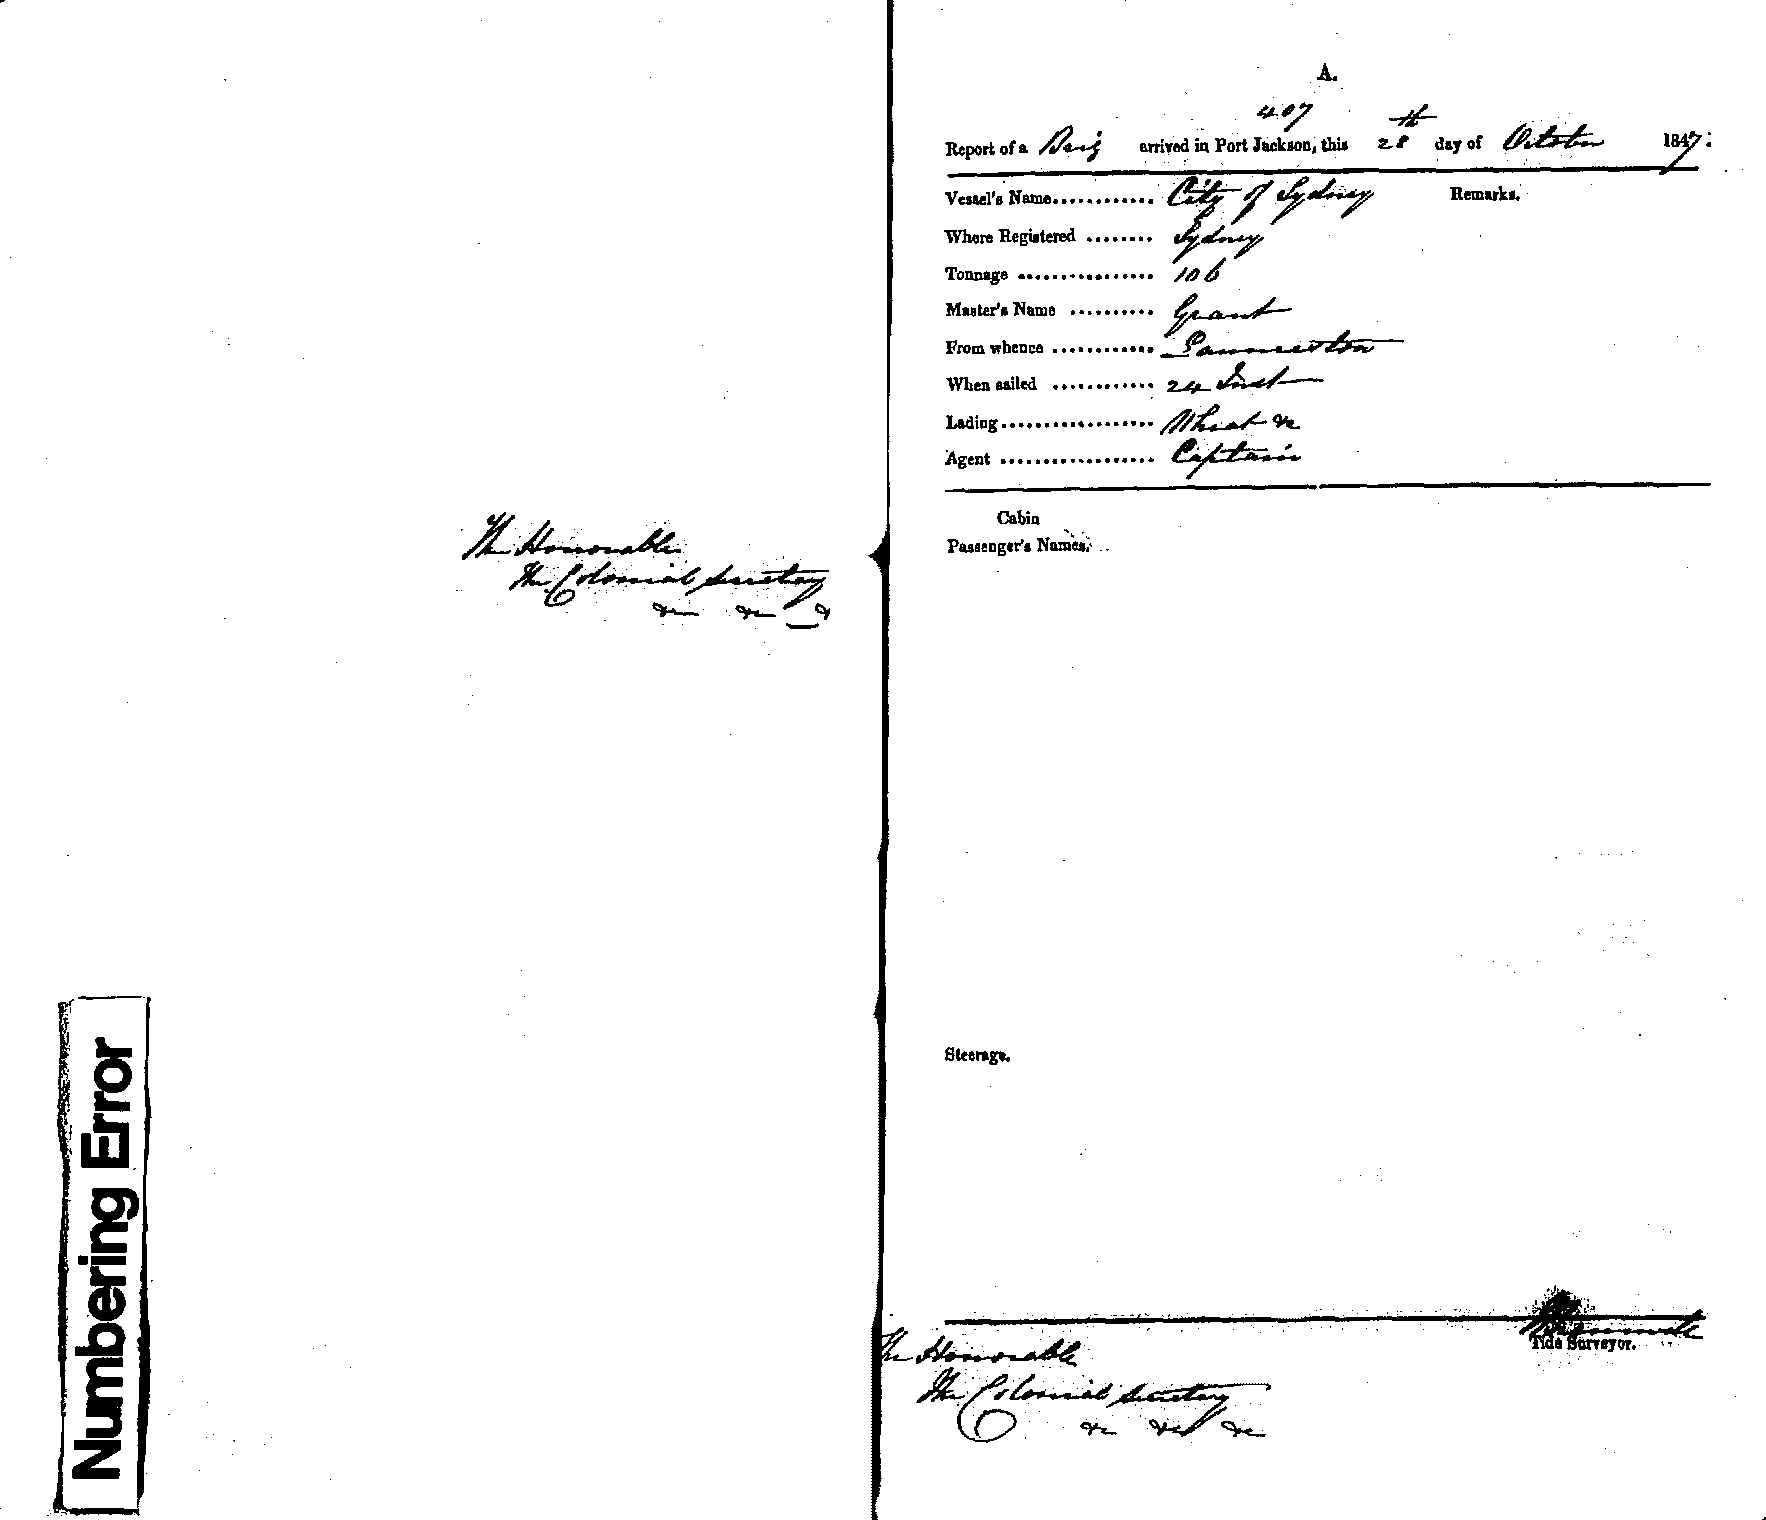 The Honorable
The Colonial Secretary
&c &c &c
Numbering Error
A.
407
Report of a Brig arrived in Port Jackson, this 28th day of October 1847.
Vessel's Name............ City of Sydney Remarks.
Where Registered ........ Sydney
Tonnage ................ 106
Master's Name .......... Grant
From whence ............ Launceston
When sailed ............ 24 Inst
Lading.................. Wheat &c
Agent .................. Captain
Cabin
Passenger's Names.
Steerage.
Tide Surveyor.
The Honorable
The Colonial Secretary
&c &c &c